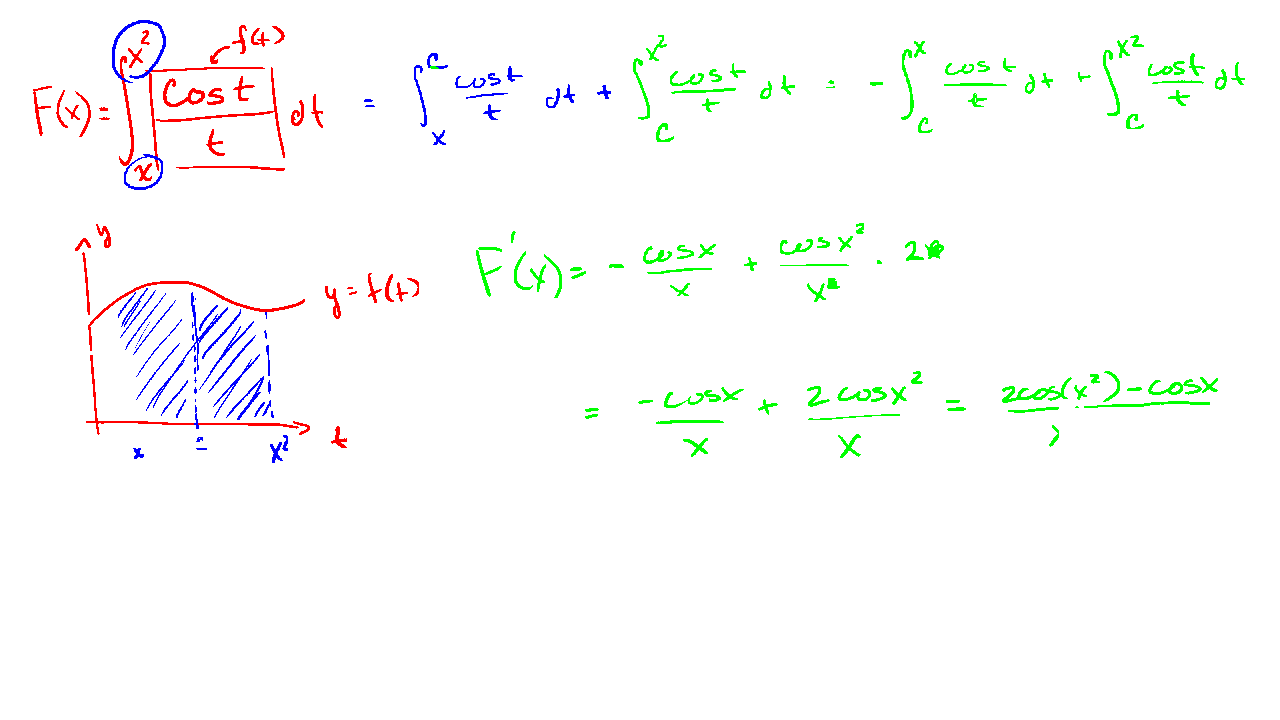 F(x) = ∫_x^{x²} cos t / t dt = ∫_x^c cos t / t dt + ∫_c^{x²} cos t / t dt = - ∫_c^x cos t / t dt + ∫_c^{x²} cos t / t dt
f(t)
y
y = f(t)
x c x² t
F'(x) = - cos x / x + cos x² / x² · 2
= -cos x / x + 2 cos x² / x = 2cos(x²) - cos x / x